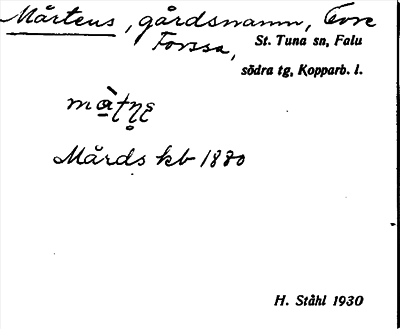 Mårtens, gårdsnamn, Övre
Forssa,
St. Tuna sn, Falu
södra tg, Kopparb. l.
Mårds kb 1880
H. Ståhl 1930